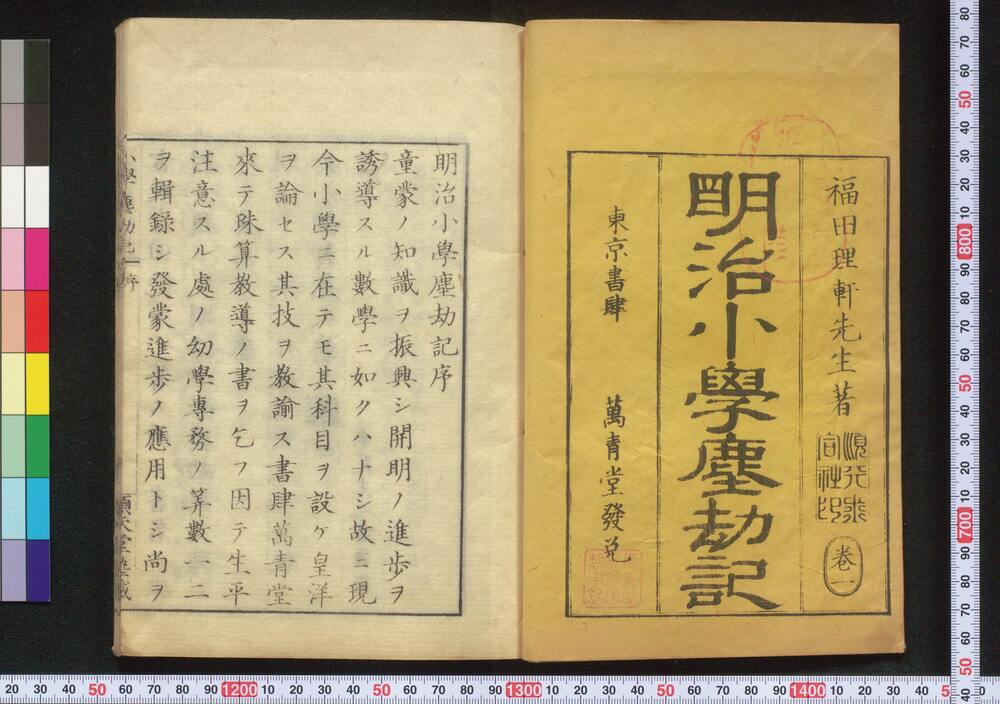 福田理軒先生著
卷一
明治小學塵劫記
東京書肆 萬青堂發兌
明治小學塵劫記序
童蒙ノ知識ヲ振興シ開明ノ進歩ヲ
誘導スル數學ニ如クハナシ故ニ現
今小學ニ在テモ其科目ヲ設ケ皇洋
ヲ論セス其技ヲ教諭ス書肆萬青堂
來テ珠算教導ノ書ヲ乞フ因テ生平
注意スル處ノ幼學專務ノ筭數一二
ヲ輯録シ發蒙進歩ノ應用トシ尚ヲ
80 70 60 50 40 30 20 10 800 90 80 70 60 50 40 30 20 10 700 90 80 70 60 50 40
20 30 40 50 60 70 80 90 1200 10 20 30 40 50 60 70 80 90 1300 10 20 30 40 50 60 70 80 90 1400 10 20 30 40 5